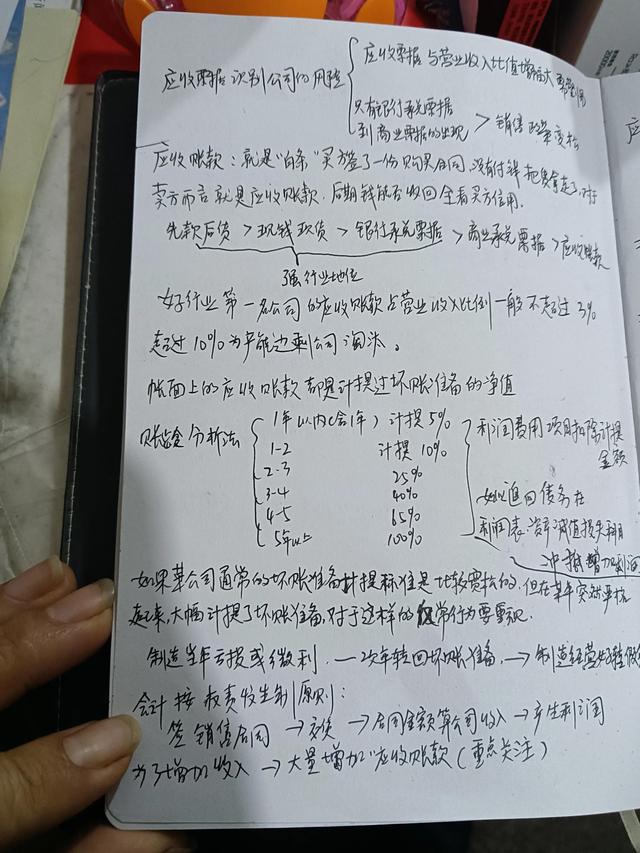 应收票据与营业收入比值增幅大要警惕
应收票据识别公司的风险
只有银行承兑票据
到商业票据的出现 > 销售政策变松
应收账款：就是“白条”买方签了一份购买合同，没有付钱把货拿走了，对
卖方而言就是应收账款，后期钱能否收回全看买方信用。
先款后货 > 现钱现货 > 银行承兑票据 > 商业承兑票据 > 应收账款
强行业地位
好行业第一名公司的应收账款占营业收入比例一般不超过3%
超过10%为 公司淘汰。
帐面上的应收账款都是计提过坏账准备的净值
账龄分析法
1年以内(含1年) 计提5%
1-2 计提10%
2-3 25%
3-4 40%
4-5 65%
5年以上 100%
利润费用项目扣除计提
金额
如以追回债务在
利润表:资产减值损失科目
冲抵增加利润
如果某公司通常的坏账准备计提标准是比较宽松的，但在某年突然严格
起来，大幅计提了坏账准备，对于这样的 常行为要重视
制造当年亏损或微利，一次年转回坏账准备，→ 制造经营好转假
会计按权责发生制原则：
签销售合同 → 交货 → 合同金额算公司收入 → 产生利润
为了增加收入 → 大量增加“应收账款（重点关注）